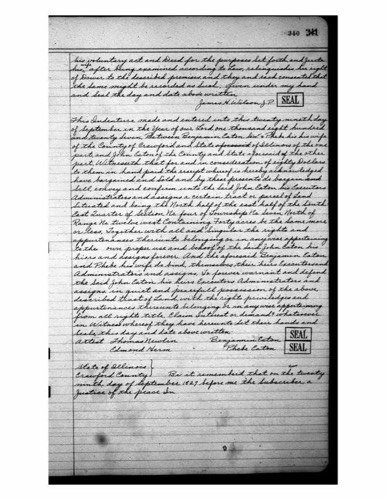 340 341
his voluntary act and Deed for the purposes Set forth and
his after being examined according to Law, relinquishes his right
of Dower to the described premises and they and each consented that
the same might be recorded as such. Given under my hand
and Seal the day and date above written
James H. Wilson J. P. SEAL
This Indenture made and entered into this twenty ninth day
of September in the Year of our Lord one thousand eight hundred
and twenty Seven, Between Benjamin Eaton, Sen. & Phebe his wife
of the County of Crawford and State of Illinois of the one
part, and John Eaton of the County and State aforesaid of the other
part Witnesseth that for and in consideration of eighty Dollars
to them in hand paid the receipt whereof is hereby acknowledged
have bargained and Sold and by these presents do bargain and
Sell convey and confirm unto the said John Eaton his Executors
Administrators and assigns a certain tract or parcel of Land
Situated and being the North half of the east half of the South
east Quarter of Section No. four of Township No. Seven North of
Range No. twelve west Containing Forty acres be the Same more
or less, Together with all and Singular the rights and
appurtenances thereunto belonging or in anywise appertaining
to the own proper use and behoof of the said John Eaton his
heirs and assigns forever. And the aforesaid Benjamin Eaton
and Phebe his wife do bind themselves, their heirs Executors
Administrators and assigns, To forever warrant and defend
the Said John Eaton his heirs Executors Administrators and
assigns in quiet and peaceful possession of the above
described that of Land with the right privileges and
appurtenances thereunto belonging or in anywise appertaining
from all right, title, Claim Interest or demand whatsoever
in Witness whereof they have hereunto Set their hands and
Seals, this day and date above written
Attest Thomas Newlin Benjamin Eaton SEAL
Edmond Phebe Eaton SEAL
State of Illinois
Crawford County Be it remembered that on the twenty
ninth day of September 1827 before me the Subscriber a
Justice of the peace In